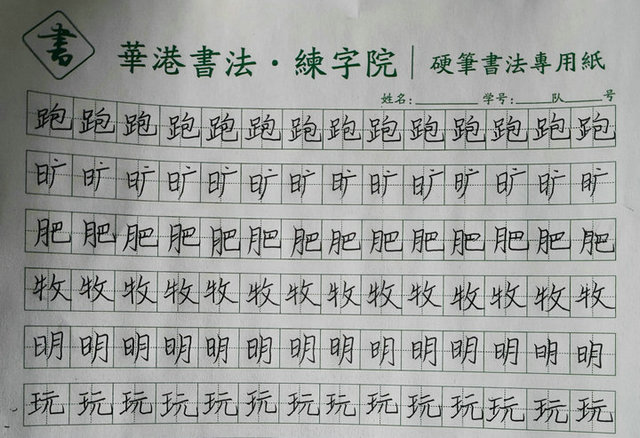 書 華港書法·練字院 | 硬筆書法專用紙
姓名:________ 学号:____队____号
跑跑跑跑跑跑跑跑跑跑跑跑跑跑
旷旷旷旷旷旷旷旷旷旷旷旷旷旷
肥肥肥肥肥肥肥肥肥肥肥肥肥肥
牧牧牧牧牧牧牧牧牧牧牧牧牧牧
明明明明明明明明明明明明明明
玩玩玩玩玩玩玩玩玩玩玩玩玩玩